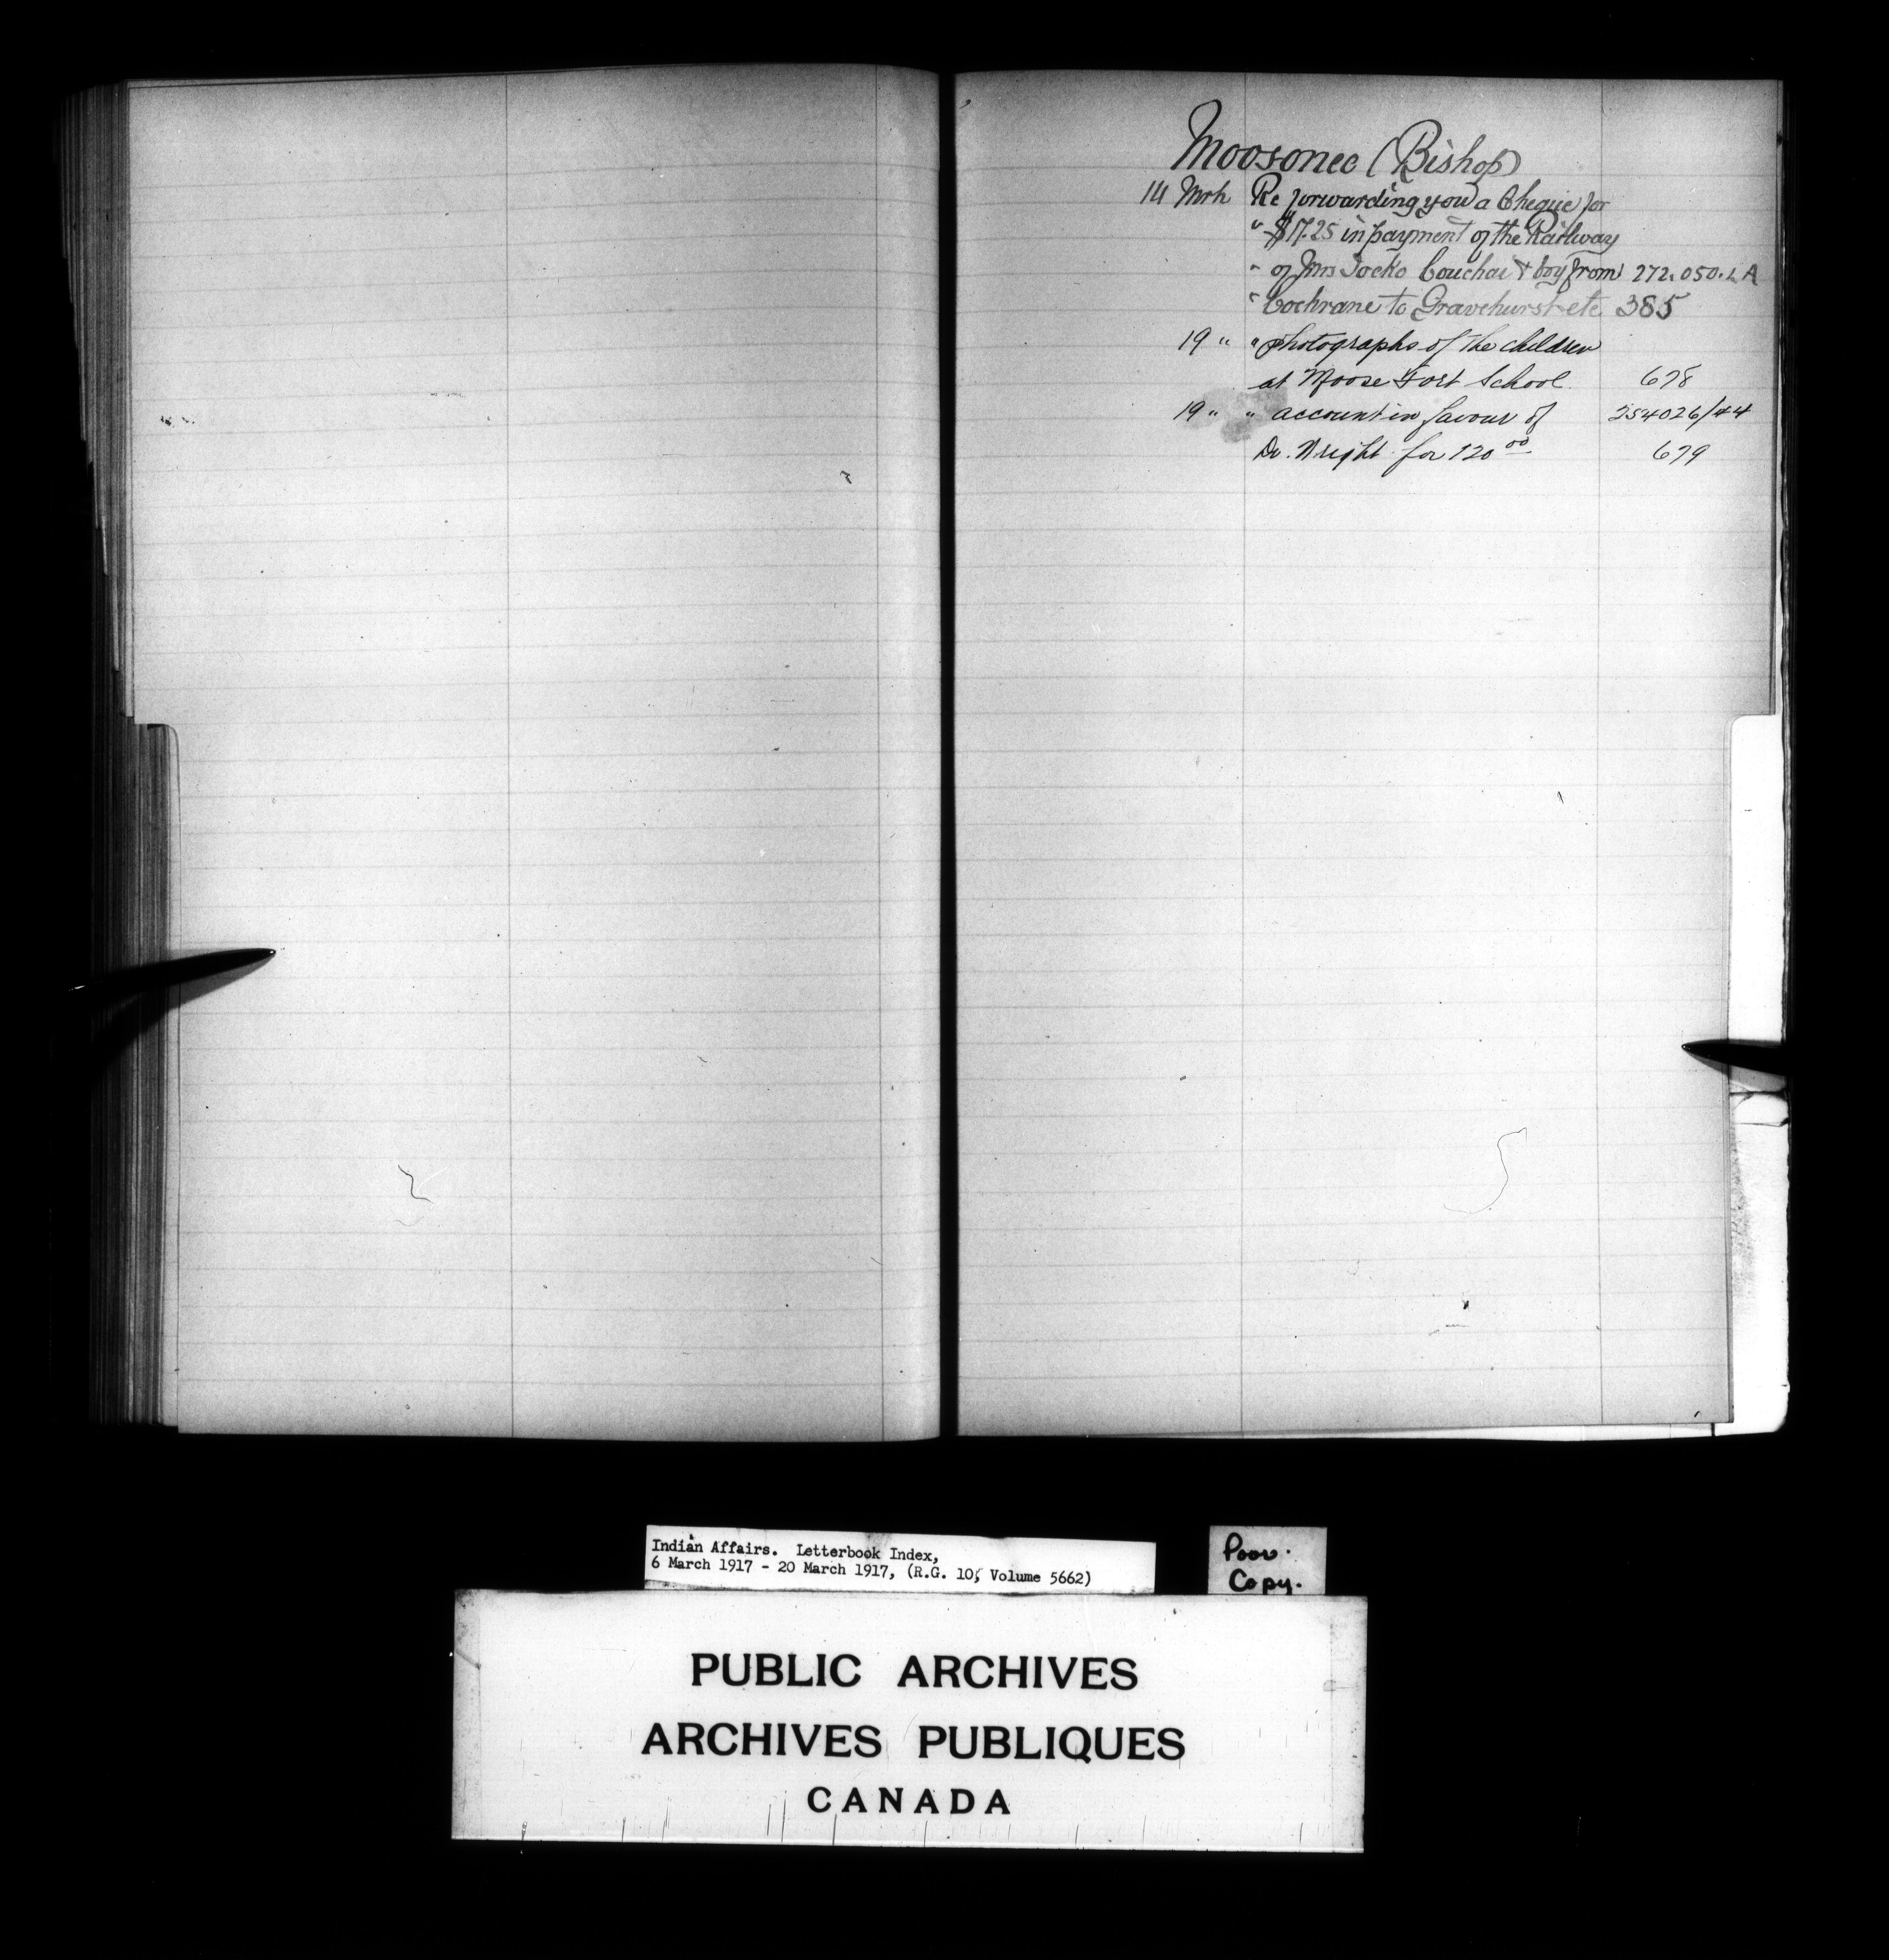 Moosonee (Bishop)
14 Mrh Re forwarding you a Cheque for
" $17.25 in payment of the Railway
" of Mrs Jocko Couchai & boy from 272.050.L A
" Cochrane to Gravehurst etc 385
19 " " photographs of the children
at Moose Fort School 678
19 " " account in favour of 254026/44
Dr. Wright for 120 00 679
Indian Affairs. Letterbook Index,
6 March 1917 - 20 March 1917, (R.G. 10, Volume 5662)
Poor.
Copy.
PUBLIC ARCHIVES
ARCHIVES PUBLIQUES
CANADA